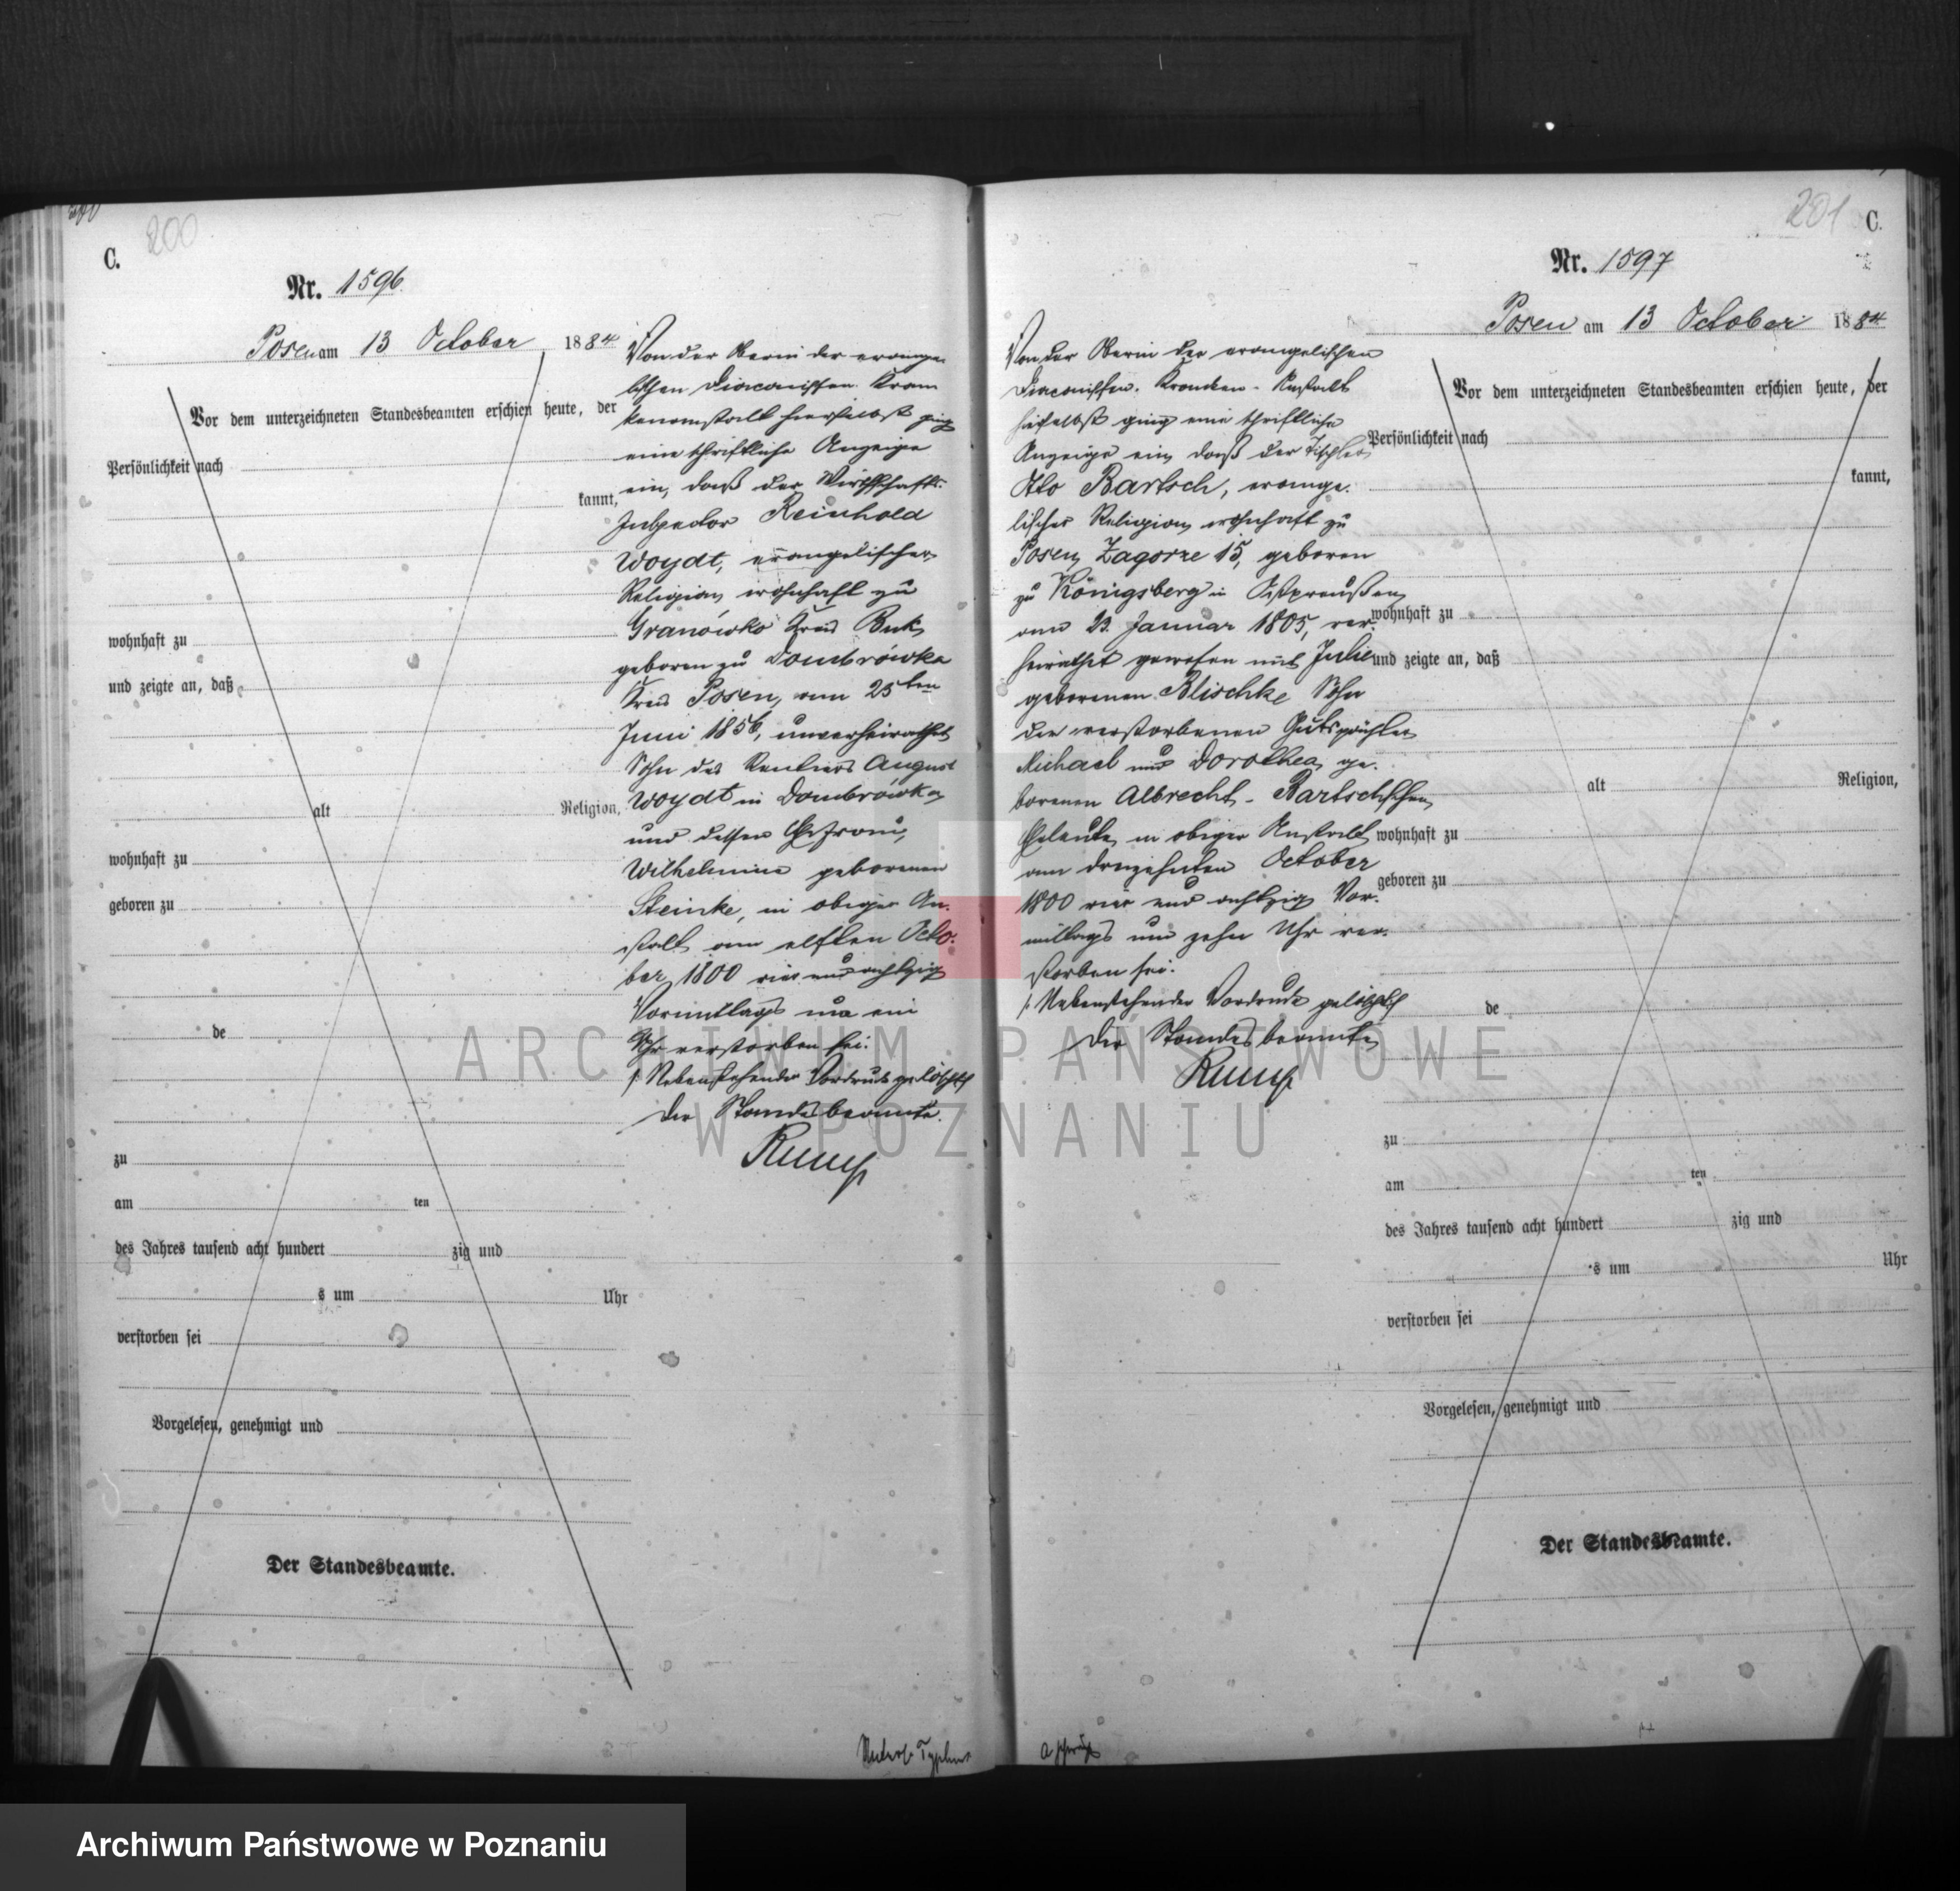 200
C.
Nr. 1596
Posen am 13 October 1884
Vor dem unterzeichneten Standesbeamten erschien heute, der
Persönlichkeit nach
kannt,
wohnhaft zu
und zeigte an, daß
alt Religion,
wohnhaft zu
geboren zu
de
zu
am ten
des Jahres tausend acht hundert zig und
s um Uhr
verstorben sei
Vorgelesen, genehmigt und
Der Standesbeamte.
Von der Oberin der evange-
lischen Diaconissen Kran-
kenanstalt hierselbst ging
eine schriftliche Anzeige
ein, daß der Wirthschafts-
Inspector Reinhold
Woydt, evangelischer
Religion wohnhaft zu
Granówko Kreis Buk,
geboren zu Dombrówka
Kreis Posen, am 25ten
Juni 1856, unverheirathet
Sohn des Rentiers August
Woydt in Dombrówka
und dessen Ehefrau,
Wilhelmine geborenen
Steinke, in obiger An-
stalt am elften Octo-
ber 1800 vier und achtzig
Vormittags um ein
Uhr verstorben sei.
/: Nebenstehender Vordruck gelöscht
Der Standesbeamte.
Rump
Typhus
201
C.
Nr. 1597
Posen am 13 October 1884
Von der Oberin der evangelischen
Diaconissen-Kranken-Anstalt
hierselbst ging eine schriftliche
Anzeige ein, daß der Tischler
Otto Bartsch, evange-
lischer Religion wohnhaft zu
Posen, Zagorze 15, geboren
zu Königsberg in Ostpreußen,
am 23. Januar 1805, ver-
heirathet gewesen mit Julie
geborenen Blischke Sohn
der verstorbenen Gutspächter
Michael und Dorothea ge-
borenen Albrecht-Bartsch'schen
Eheleute, in obiger Anstalt
am dreizehnten October
1800 vier und achtzig Vor-
mittags um zehn Uhr ver-
storben sei.
/: Nebenstehender Vordruck gelöscht
Der Standesbeamte
Rump
Vor dem unterzeichneten Standesbeamten erschien heute, der
Persönlichkeit nach
kannt,
wohnhaft zu
und zeigte an, daß
alt Religion,
wohnhaft zu
geboren zu
de
zu
am ten
des Jahres tausend acht hundert zig und
s um Uhr
verstorben sei
Vorgelesen, genehmigt und
Der Standesbeamte.
ARCHIWUM PAŃSTWOWE
W POZNANIU
Archiwum Państwowe w Poznaniu